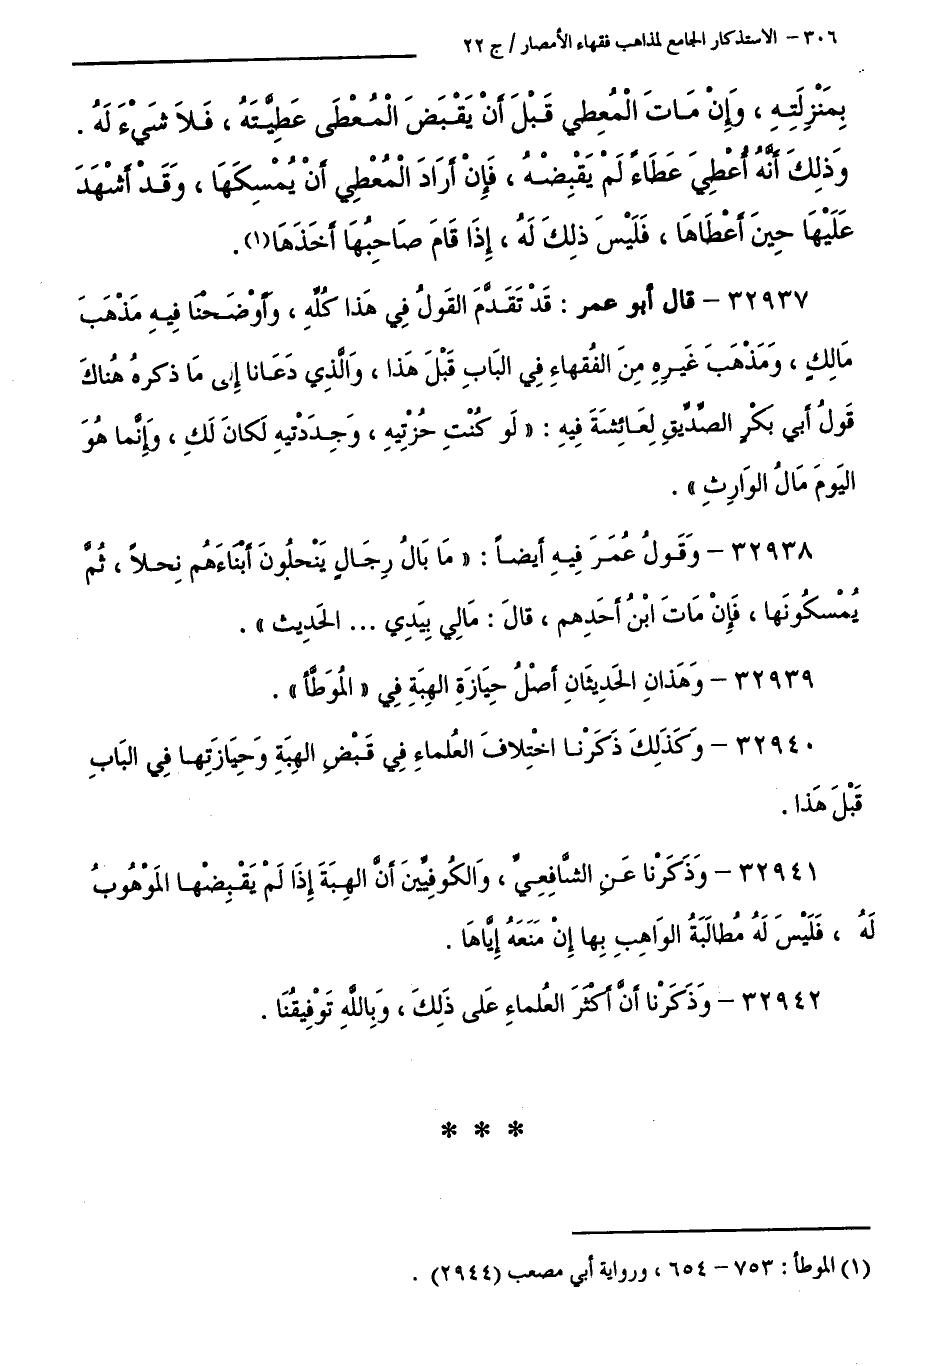 ٣٠٦ – الاستذكار الجامع لمذاهب فقهاء الأمصار / ج ٢٢
بِمَنْزِلَتِهِ ، وَإِنْ مَـاتَ الْمُعِطِي قَـبْلَ أَنْ يَقْـبَضَ الْمُـعْطَى عَطِيَّـتَهُ ، فَـلاَ شَيْءَ لَهُ .
وَذلِكَ أَنَّهُ أُعْطِيَ عَطَاءً لَمْ يَقْبِضْـهُ ، فَإِنْ أَرَادَ الْمُعْطِي أَنْ يُمْسِكَهَا ، وقَـدْ أَشْهَدَ
عَلَيْهَا حِينَ أَعْطَاهَا ، فَلَيْسَ ذلِكَ لَهُ ، إِذَا قَامَ صَاحِبُهَا أَخَذَهَا(١).
٣٢٩٣٧ – قال أبو عمر : قَدْ تَقَـدَّمَ القَولُ فِي هَذا كُلِّه ، وَأَوْضَـحْنَا فِيـهِ مَذْهَبَ
مَالِكٍ ، وَمَذْهَبَ غَيـرِهِ مِنَ الفُقهاءِ فِي البَابِ قَبْلَ هَذا ، وَالَّذِي دَعَانا إِلى مَا ذكرهُ هُنَاكَ
قَولُ أَبي بَكْرٍ الصِّدِّيقِ لِعَـائِشةَ فِيهِ : « لَو كُنْتِ حُزْتِيهِ ، وَجِـدَدْتيهِ لَكانَ لَكِ ، وَإِنَّما هُوَ
اليَومَ مَالُ الوَارِثِ » .
٣٢٩٣٨ – وَقَـولُ عُمَـرَ فِيـهِ أَيضـاً : « مَا بَالُ رِجَـالٍ يَنْحلُونَ أَبْنَاءَهُم نِحـلاً ، ثُمَّ
يُمْسكُونَها ، فَإِنْ مَاتَ ابْنُ أَحَدِهم ، قالَ : مَالِي بِيَدِي ... الحَدِيث » .
٣٢٩٣٩ – وَهَذانِ الحَدِيثَانِ أَصْلُ حِيَازَةِ الهِبَةِ فِي « المُوَطَّأ » .
٣٢٩٤٠ – وكَذلِكَ ذَكَرْنـا اخْتِلافَ العُلماءِ فِي قَـبْضِ الهِبَةِ وَحِيَازَتِهـا فِي البَابِ
قَبْلَ هَذا .
٣٢٩٤١ – وَذَكَرْنا عَـنِ الشَّافِعِـيِّ ، وَالكُوفِيِّينَ أَنَّ الهِـبَةَ إِذَا لَمْ يَقْـبِضْهـا المَوْهُوبُ
لَهُ ، فَلَيْسَ لَهُ مُطالَبَةُ الوَاهِبِ بِها إِنْ مَنَعَهُ إِيَّاهَا .
٣٢٩٤٢ – وَذَكَرْنا أَنَّ أَكْثَرَ العُلماءِ عَلى ذَلِكَ ، وَبِاللَّهِ تَوْفِيقُنَا .
* * *
(١) الموطأ : ٧٥٣ – ٦٥٤ ، ورواية أبي مصعب (٢٩٤٤) .